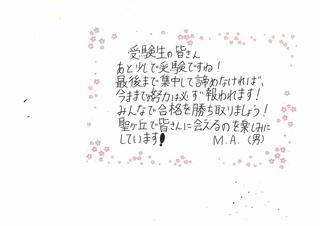 受験生の皆さん
あと少しで受験ですね！
最後まで集中して諦めなければ、
今までの努力は必ず報われます！
みんなで合格を勝ち取りましょう！
聖ヶ丘で皆さんに会えるのを楽しみに
しています！ M.A.（男）